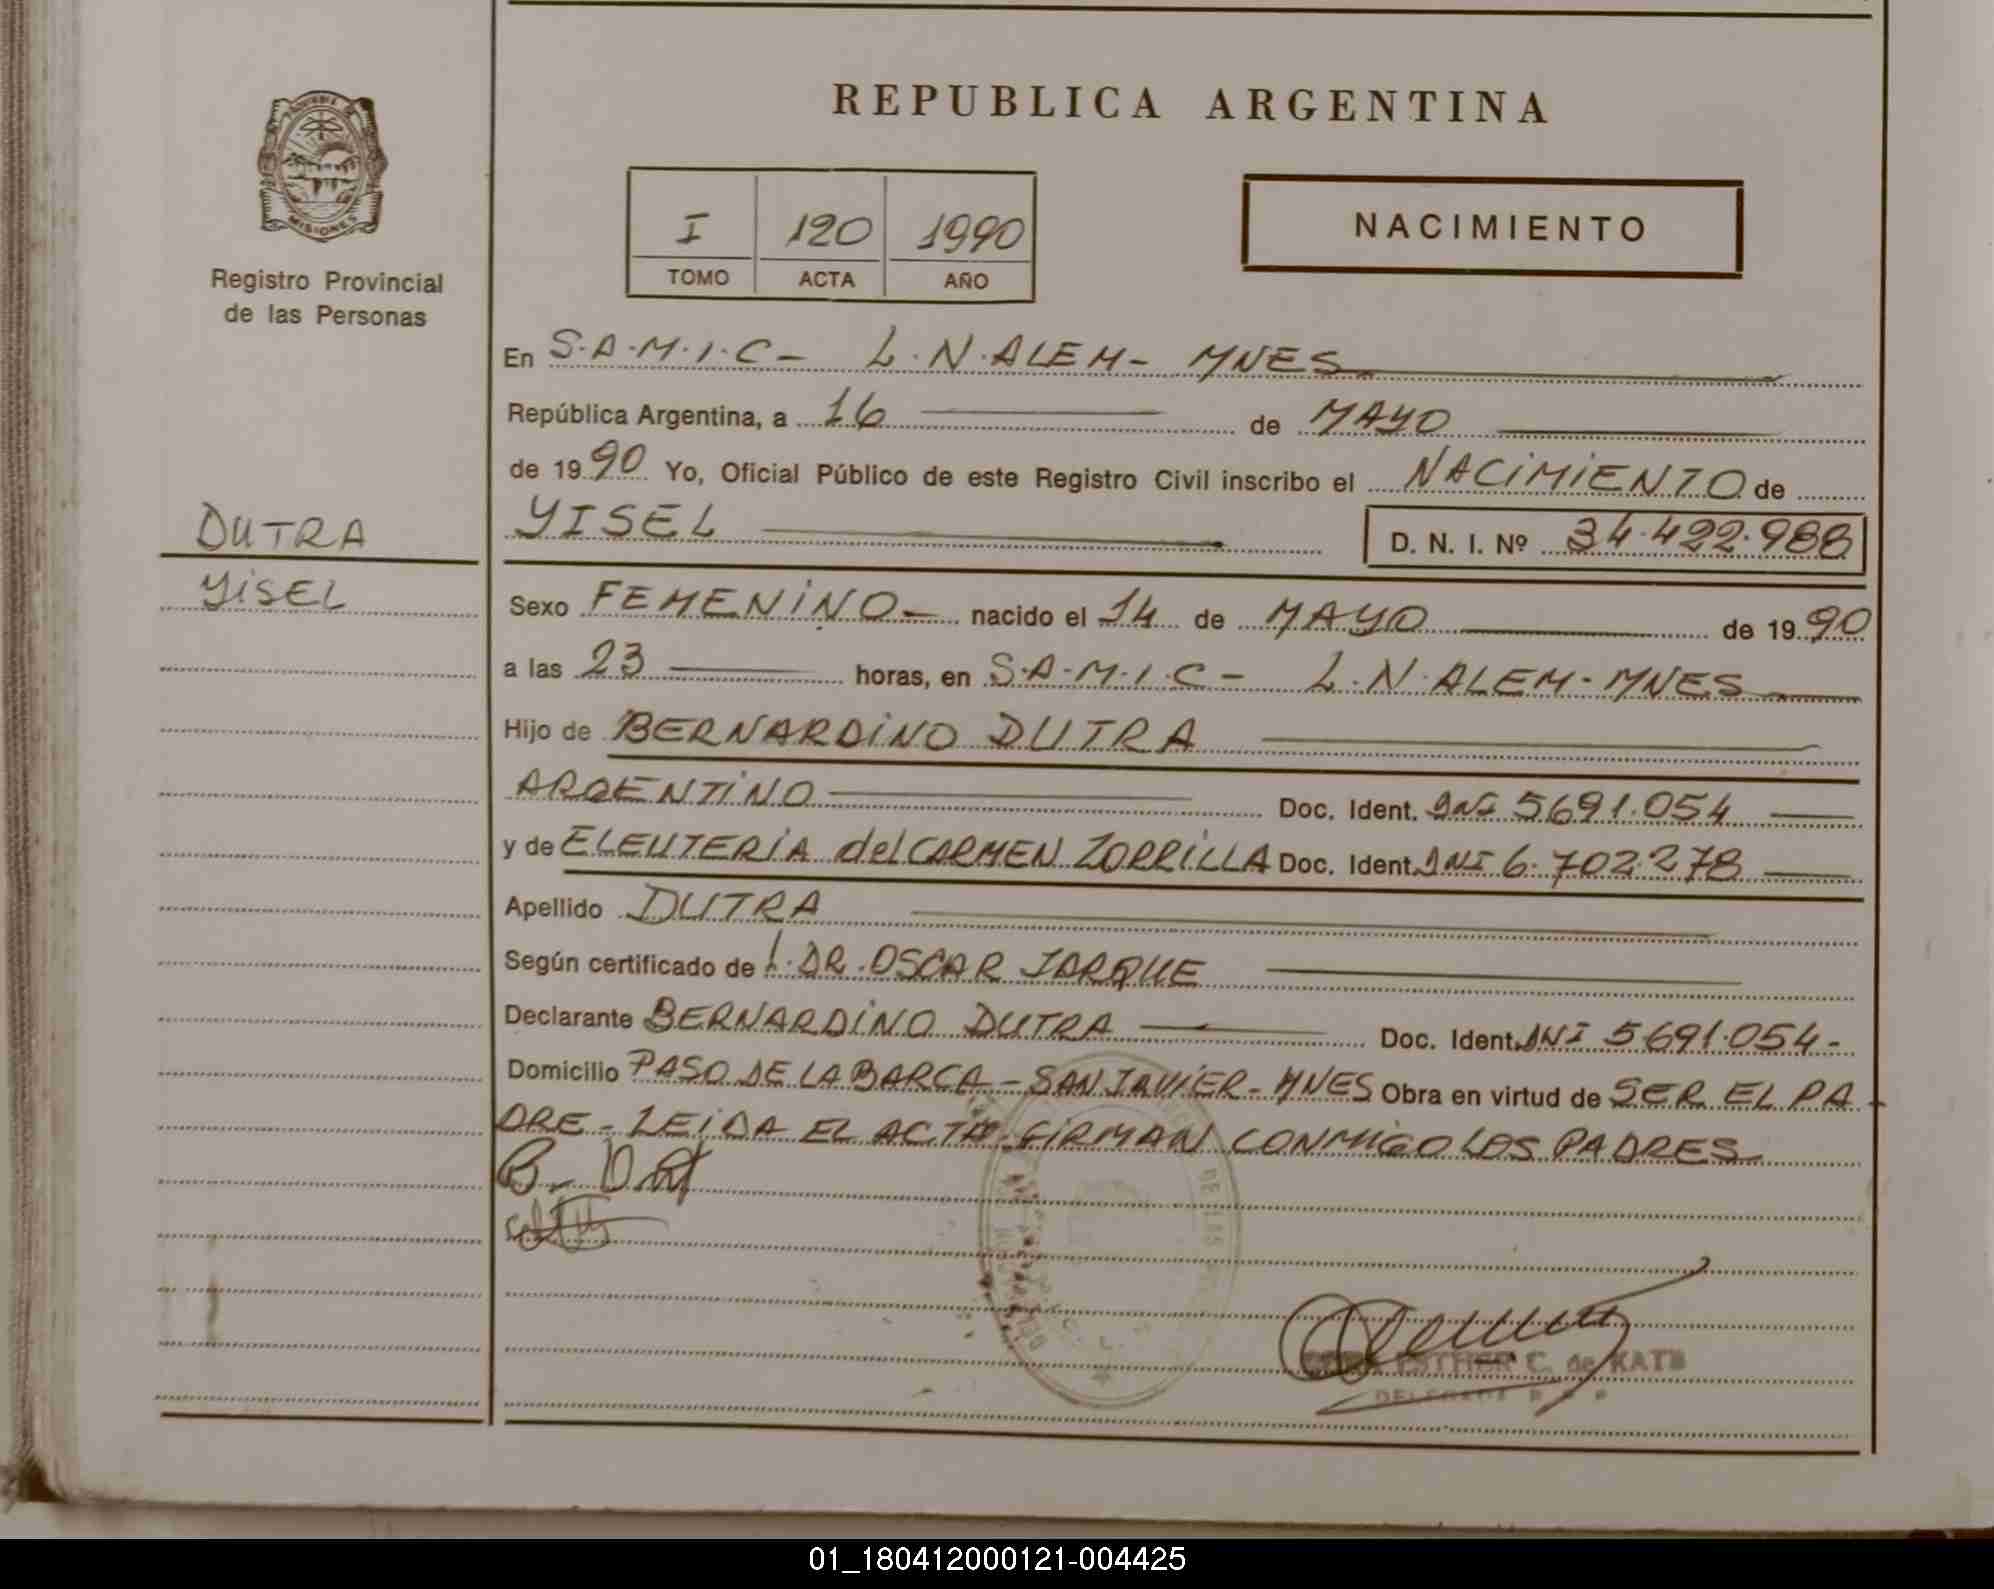 REPUBLICA ARGENTINA
MISIONES
Registro Provincial
de las Personas
I 120 1990
TOMO ACTA AÑO
NACIMIENTO
En S.A.M.I.C- L.N.ALEM- MNES
República Argentina, a 16 de MAYO
de 1990 Yo, Oficial Público de este Registro Civil inscribo el NACIMIENTO de
DUTRA
YISEL
YISEL D. N. I. Nº 34.422.988
Sexo FEMENINO- nacido el 14 de MAYO de 1990
a las 23 horas, en S.A.M.I.C- L.N.ALEM-MNES
Hijo de BERNARDINO DUTRA
ARGENTINO Doc. Ident. DNI 5691.054
y de ELEUTERIA del CARMEN ZORRILLA Doc. Ident. DNI 6.702.278
Apellido DUTRA
Según certificado de L.DR.OSCAR JARQUE
Declarante BERNARDINO DUTRA Doc. Ident. DNI 5691.054-
Domicilio PASO DE LA BARCA - SAN JAVIER - MNES Obra en virtud de SER EL PA
DRE - LEIDA EL ACTA FIRMAN CONMIGO LOS PADRES
DE LAS
ESTHER C. de KATZ
DELEGADA
01_180412000121-004425